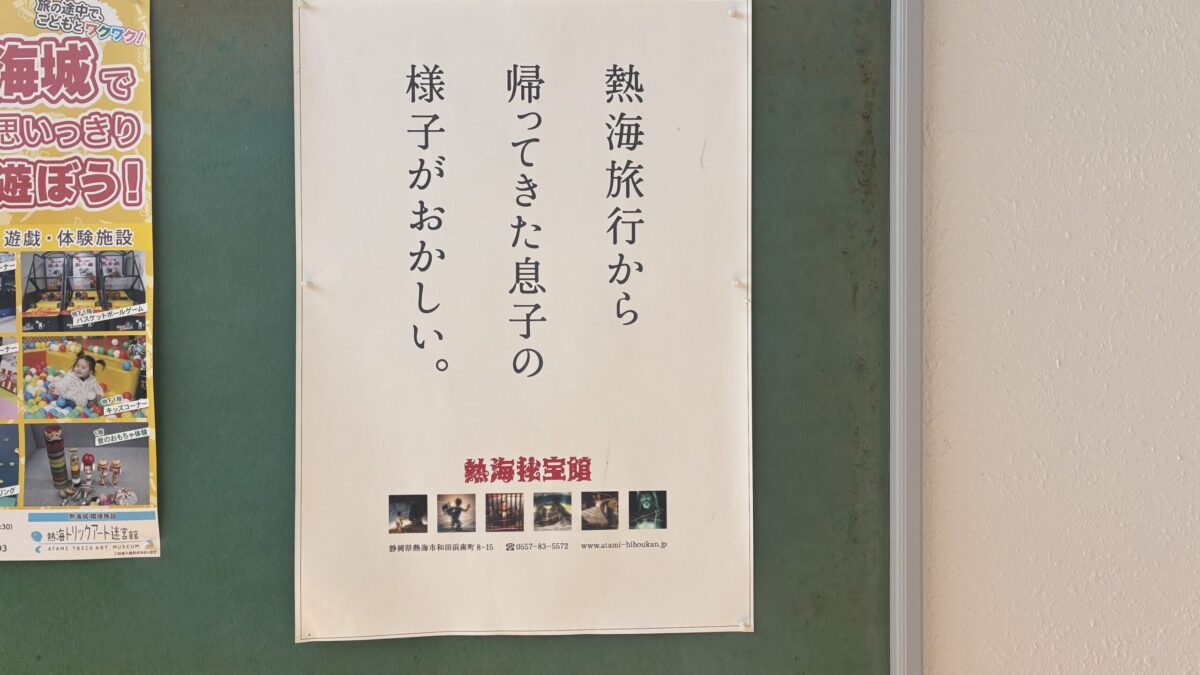 旅の途中で、
こどもとワクワク!
海城で
思いっきり
遊ぼう!
遊戯・体験施設
ーナー
地下1階
バスケットボールゲーム
ーナー
地下1階
キッズコーナー
1階
昔のおもちゃ体験
リング
:30)
93
熱海城 隣接施設
熱海トリックアート迷宮館
ATAMI TRICK ART MUSEUM
熱海旅行から
帰ってきた息子の
様子がおかしい。
熱海秘宝館
静岡県熱海市和田浜南町 8-15 ☎0557-83-5572 www.atami-hihoukan.jp